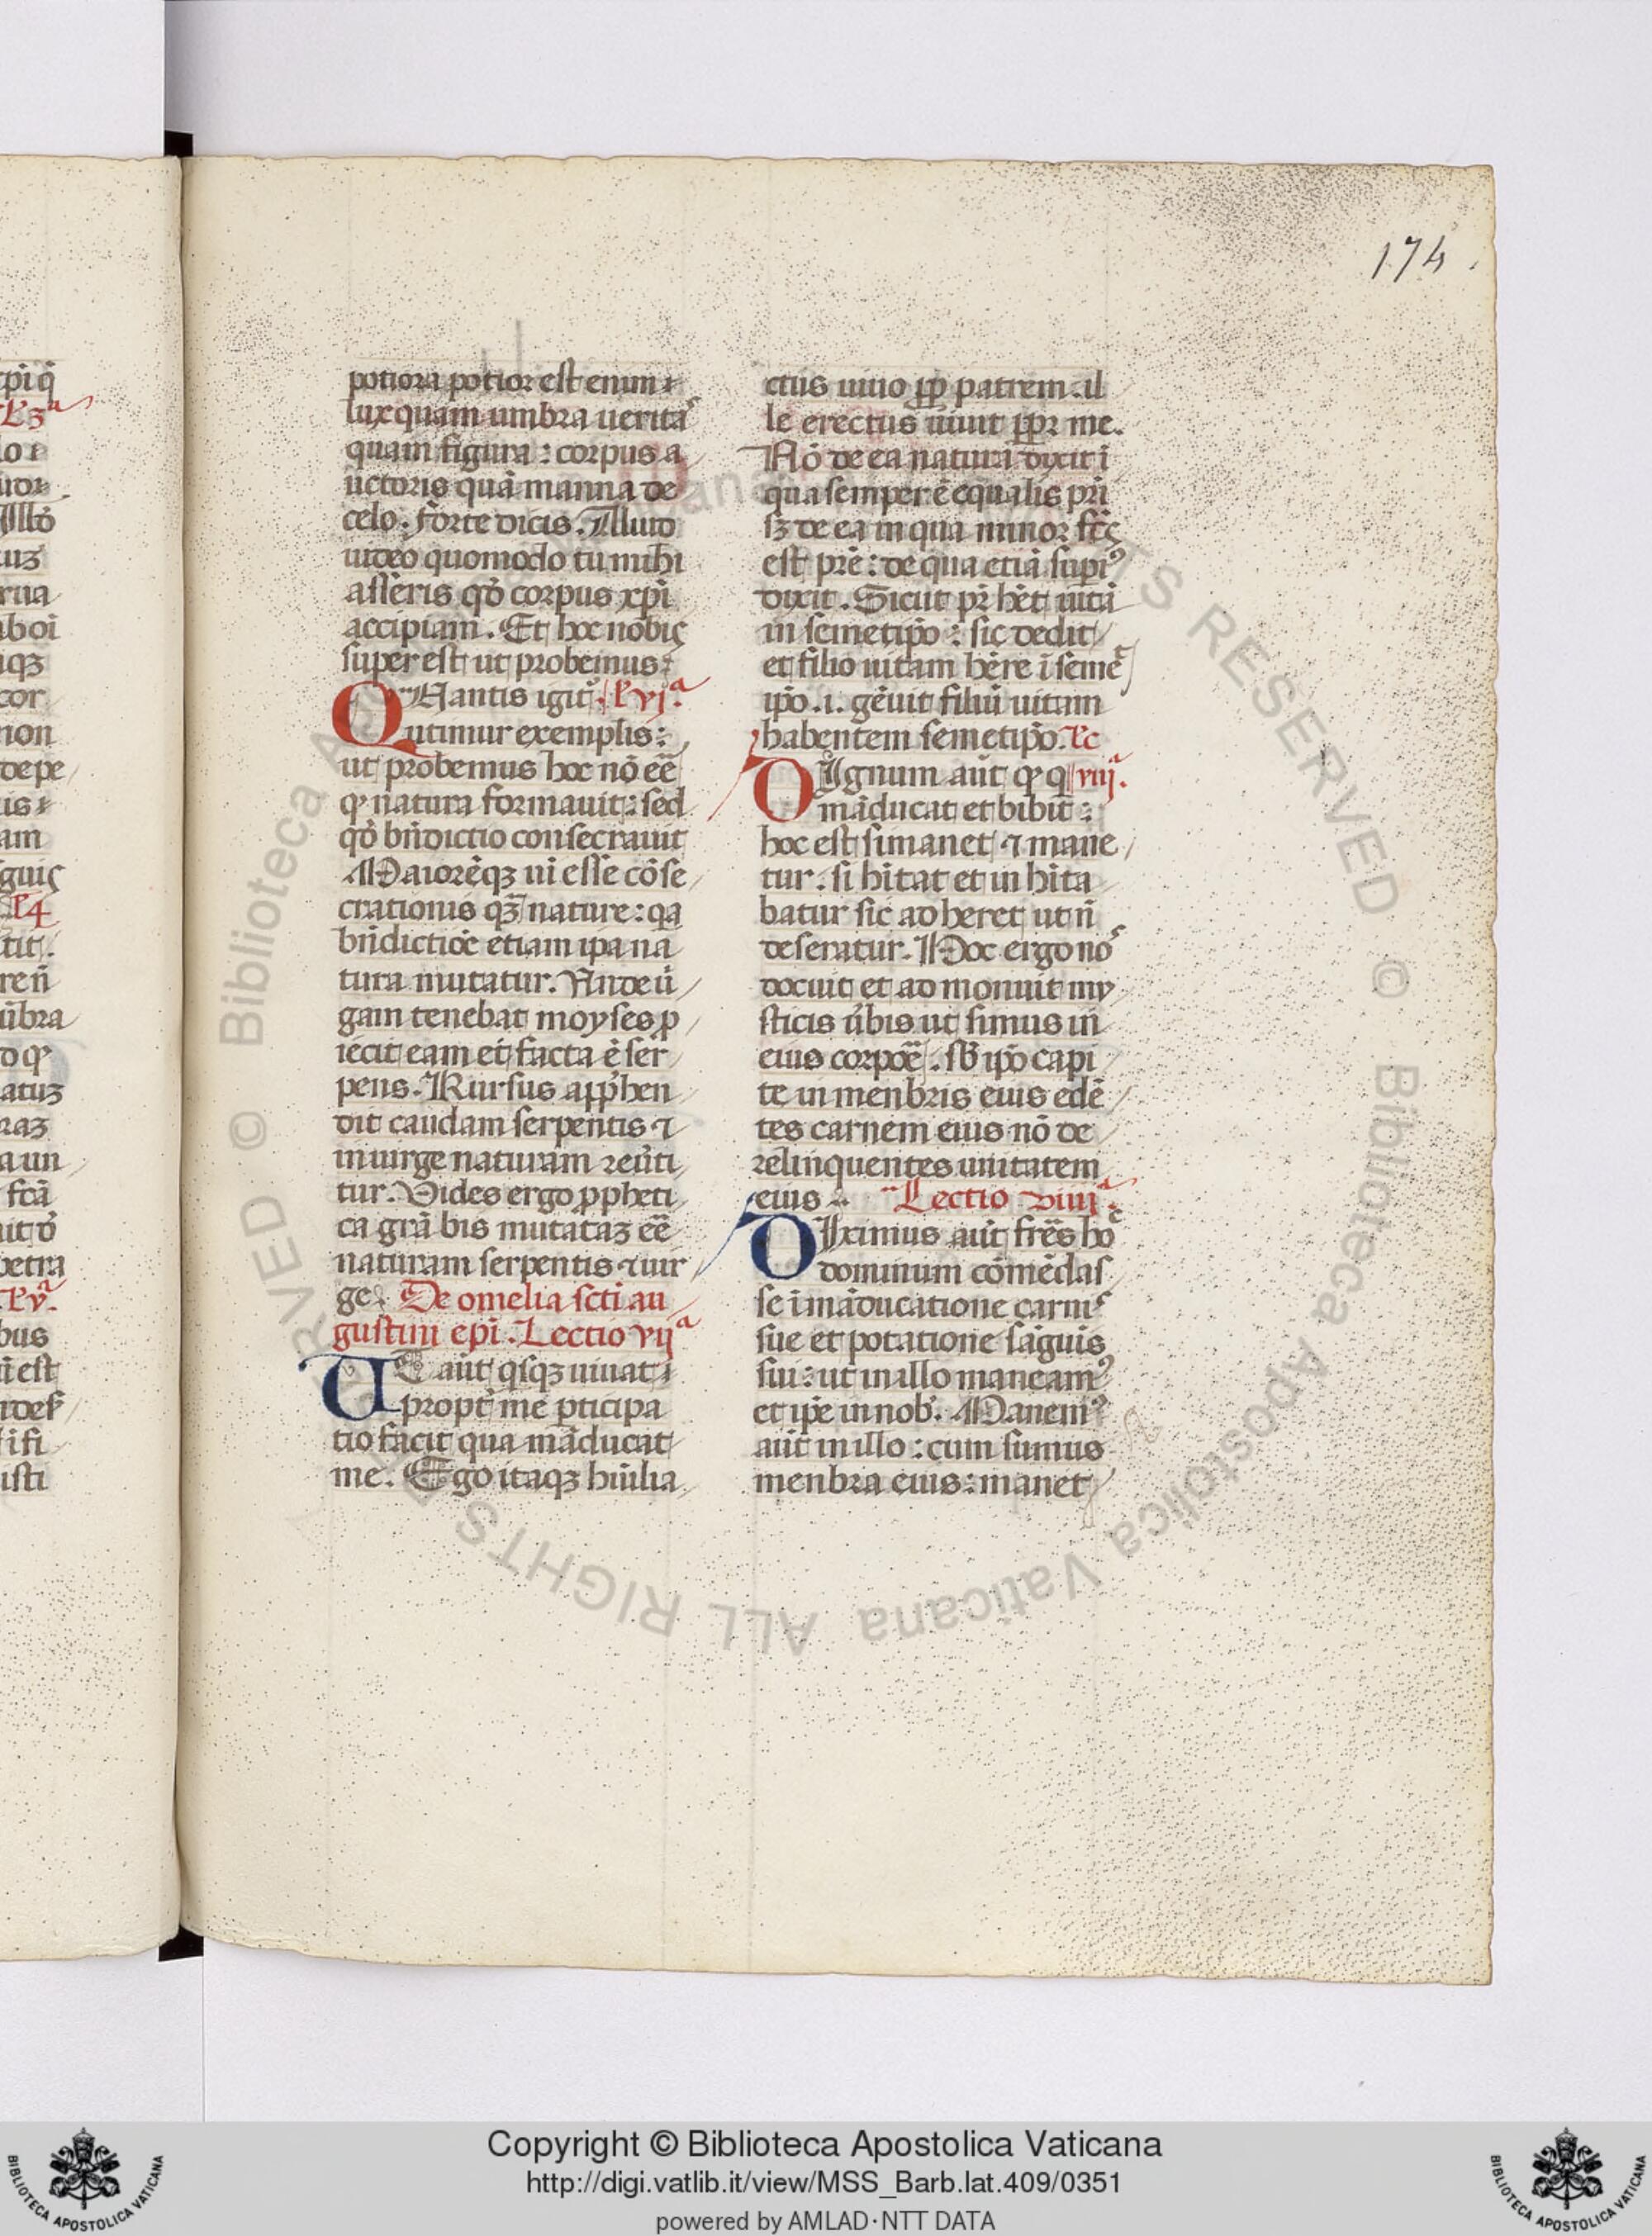 174
potiora potior est enim ⁊
lux quam umbra uerita^s
quam figura : corpus a
uctoris quā manna de
celo. forte dicis. Illud
uideo quomodo tu mihi
asseris qđ corpus xp̄i
accipiam. Et hoc nobis
superest ut probemus :
QUantis igit̄. l̓. vjª.
utimur exemplis :
ut probemus hoc nō eē
qđ natura formauit : sed
qđ bn̄dictio consecrauit
Maiorēqꝫ uī esse cōse
crationis qꝫ nature : qa
bn̄dictiōe etiam ip̄a na
tura mutatur. Vnde ū
gam tenebat moyses ꝓ
iecit eam et facta ē ser
pens. Rursus app̄hen
dit caudam serpentis ⁊
in uirge naturam reūti
tur. Vides ergo ꝓpheti
ca grā bis mutataꝫ eē
naturam serpentis ⁊ uir
ge. De omelia scti au
gustini epi. Lectio vijª
UT aūt qsqꝫ uiuat
propt̄ me ꝑticipa
tio facit qua māducat
me. Ego itaqꝫ hūilia
ctus uiuo ꝓp̄ patrem. il
le erectus uiuit ꝓpr̄ me.
Nō de ea natura dixit ī
qua semper ē equalis pr̄i
sꝫ de ea in qua minor fc̄s
est pr̄e : de qua etiā supi⁹
dixit. Sicut pr̄ h̄et uitā
in semetip̄o : sic dedit
et filio uitam h̄ere ī semet
ip̄o .i. genuit filiū uitam
habentem semetip̄o. lc̄
DIgnum aūt qđ q viijª.
māducat et bibit :
hoc est si manet ⁊ mane
tur. si h̄itat et in h̄ita
batur sic ad heret ut n̄
deseratur. Hoc ergo no^s
docuit et ad monuit my
sticis ūbis ut simus in
eius corpoē. sb̄ ip̄o capi
te in menbris eius edē
tes carnem eius nō de
relinquentes unitatem
eius .. Lectio viiijª.
DIximus aūt frēs ho^c
dominum cōmēdas
se ī māducatione carni^s
sue et potatione sāguis
sui : ut in illo maneam⁹
et ip̄e in nob̄. Manem⁹
aūt in illo : cum sumus
menbra eius : manet
Copyright © Biblioteca Apostolica Vaticana
http://digi.vatlib.it/view/MSS_Barb.lat.409/0351
powered by AMLAD·NTT DATA
BIBLIOTECA APOSTOLICA VATICANA
BIBLIOTECA APOSTOLICA VATICANA